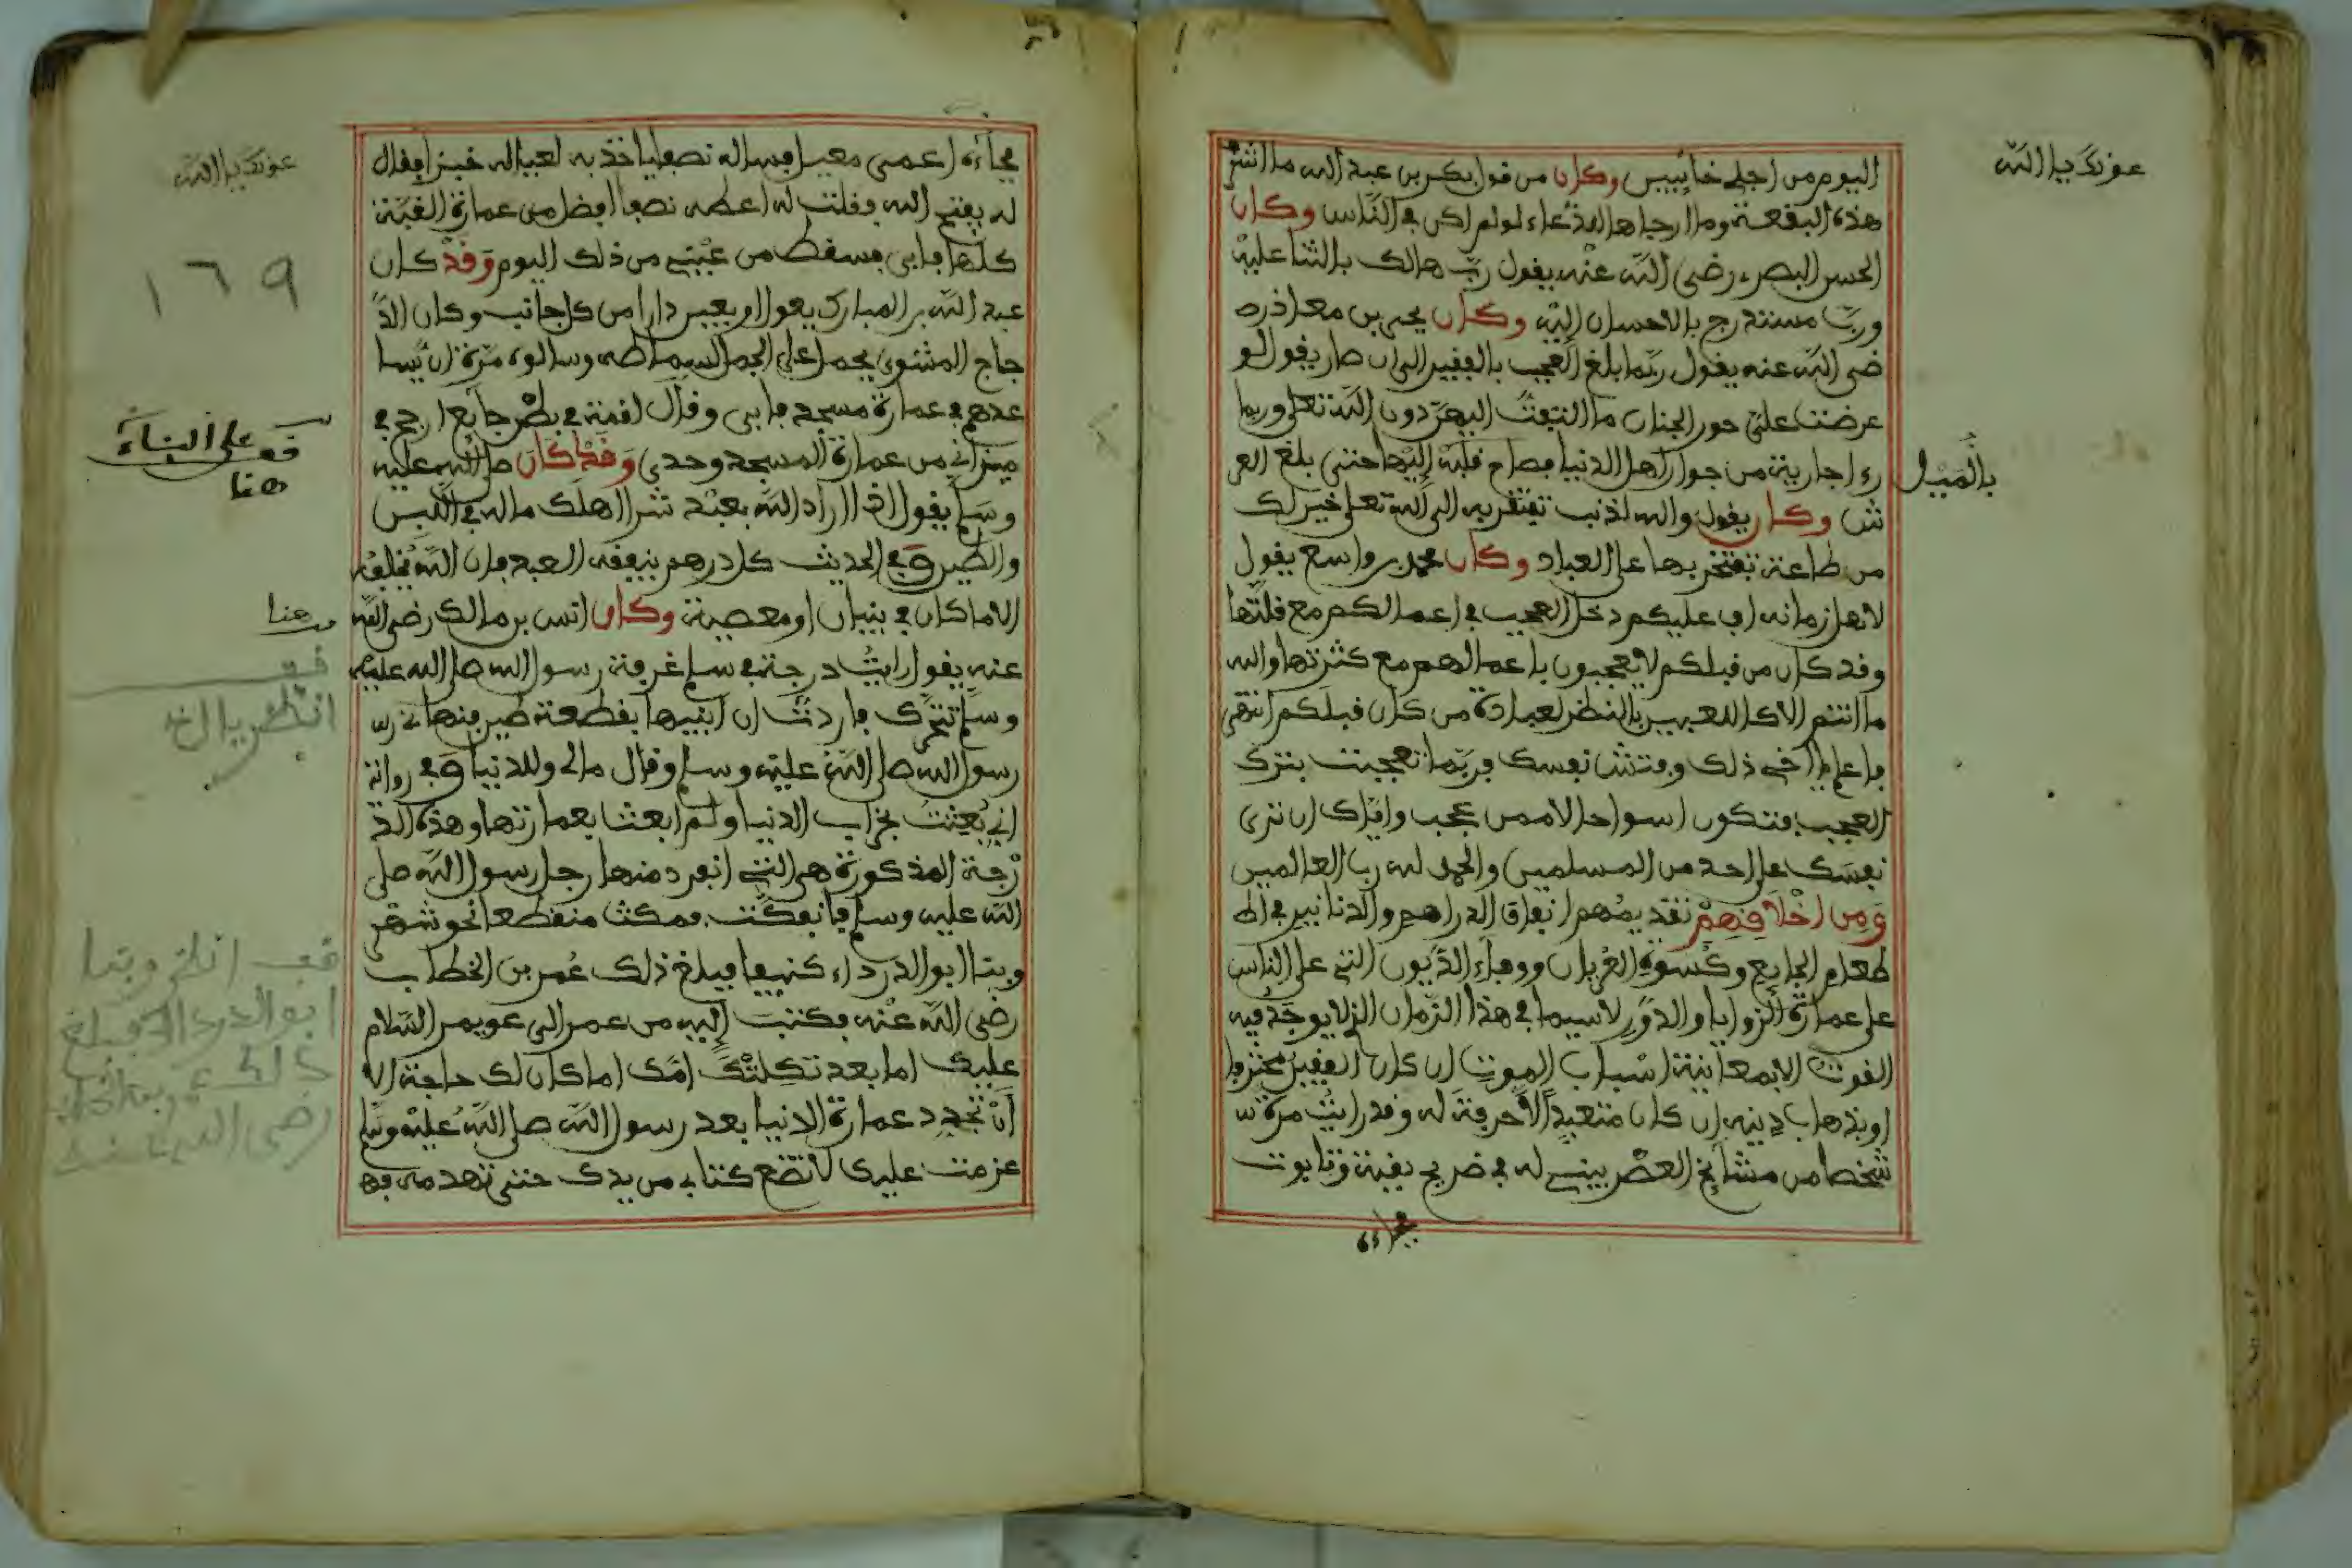 عونك يا الله
اليوم من اجلي خائبين وكان من قول بكر بن عبد الله ما اشر
هذه البقعة وما ارجاها للدعاء لو لم اكن في الناس وكان
الحسن البصري رضي الله عنه يقول رب هالك بالثنا عليه
ورب مستدرج بالاحسان اليه وكان يحيى بن معاذ رض
ضى الله عنه يقول ربما بلغ العجب بالفقير الى ان صار يقول لو
عرضت علي حور الجنان ما التفت اليهن دون الله تعلى وربما
رءا جارية من جوار اهل الدنيا فصاح قلبه اليها حتى بلغ العر
بالميل
ش وكان يقول والله لذنب تفتقر به الى الله تعلى خير لك
من طاعة تفتخر بها على العباد وكان محمد بن واسع يقول
لاهل زمانه اف عليكم دخل العجب في اعمالكم مع قلتها
وقد كان من قبلكم لا يعجبون باعمالهم مع كثرتها والله
ما انتم الا كاللاعبين بالنظر لعبادة من كان قبلكم انتهى
فاعلم يا اخي ذلك وفتش نفسك فربما تعجبت بترك
العجب فتكون اسوا حالا ممن عجب واياك ان ترى
نفسك على احد من المسلمين والحمد لله رب العالمين
ومن اخلاقهم تقديمهم انفاق الدراهم والدنانير في اط
طعام الجايع وكسوة العريان ووفاء الديون التي على الناس
على عمارة الزوايا والدور لاسيما في هذا الزمان الذي لا يوجد فيه
القوت الا بمعاينة اسباب الموت ان كان الفقير محترفا
او بذهاب دينه ان كان متعبدا لا حرفة له وقد رايت مرة
شخصا من مشايخ العصر يبنى له في ضريح بقبة وتابوت
فجاءه
عونك يا الله
فجاءه اعمى معيل فساله نصفا ياخذ به لعياله خبزا فقال
له يفتح الله وقلت له اعطه نصفا افضل من عمارة القبة
كلها فابى فسقط من عيني من ذلك اليوم وقد كان
١٦٩
عبد الله بن المبارك يعول اربعين دارا من كل جانب وكان الد
جاج المشوي يحمل على الجمل لسماطه وسالوه مرة ان يسا
عدهم في عمارة مسجد فابى وقال لقمة في بطن جائع ارجح في
قف على البناء
هنا
ميزاني من عمارة المسجد وحدي وقد كان صلى الله عليه
وسلم يقول اذا اراد الله بعبد شرا اهلك ماله في اللبن
والطين وفي الحديث كل درهم ينفقه العبد فان الله يخلفه
الا ما كان في بنيان او معصية وكان انس بن مالك رضى الله
هنا
عنه يقول رايت درجة في سلم غرفة رسول الله صلى الله عليه
قف
انظر يا اخي
وسلم تتحرك فاردت ان ابنيها بقطعة طين فنهاني
رسول الله صلى الله عليه وسلم وقال مالي وللدنيا وفي رواية
اني بعثت بخراب الدنيا ولم ابعث بعمارتها وهذه الد
رجة المذكورة هي التي انفرد منها رجل رسول الله صلى
الله عليه وسلم فانفكت فمكث منقطعا نحو شهر
وبنا ابو الدرداء كنيفا فبلغ ذلك عمر بن الخطاب
قف انظر وبنا
ابو الدرداء فبلغ
ذلك عمر بن الخطاب
رضى الله عنه
رضى الله عنه فكتب اليه من عمر الى عويمر السلام
عليك اما بعد ثكلتك امك اما كان لك حاجة الا
ان تجدد عمارة الدنيا بعد رسول الله صلى الله عليه وسلم
عزمت عليك لا تضع كتابي من يدك حتى تهدمه فه